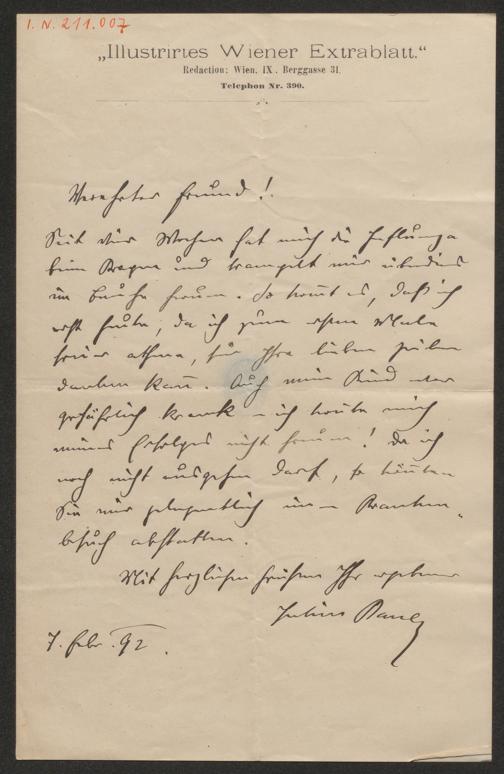 I. N. 211.007
„Illustrirtes Wiener Extrablatt.“
Redaction: Wien, IX., Berggasse 31.
Telephon Nr. 390.
Verehrter Freund!
Seit vier Wochen hat mich die Influenza
beim Kragen und trampelt mir überdies
im Bauche herum. So kommt es, daß ich
erst heute, da ich zum ersten Male
freier athme, für Ihre lieben Zeilen
danken kann. Auch mein Kind war
gefährlich krank – ich konnte mich
meines Erfolges nicht freuen! Da ich
noch nicht ausgehen darf, so könnten
Sie mir gelegentlich einen Kranken-
besuch abstatten.
Mit herzlichen Grüßen Ihr ergebener
Julius Bauer
7. Febr. 92.